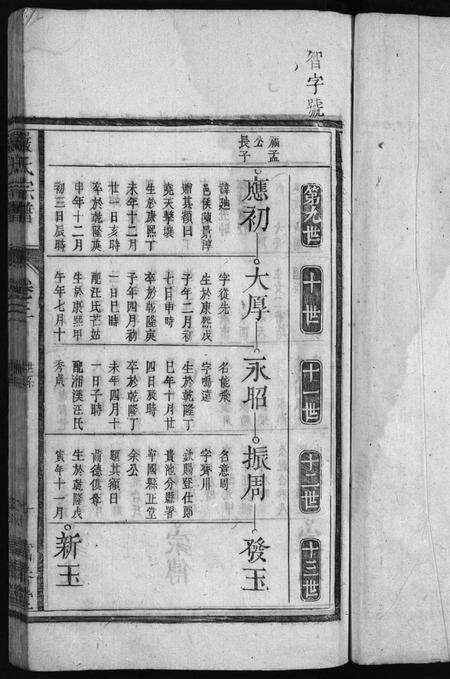 智字號
第九世
十世
十一世
十二世
十三世
孟公
長子
應初
諱廸
邑侯陳景淳
贈其額曰
堯天擊壤
生於康熙丁
未年十二月
廿一日亥時
卒於乾隆英
申年十二月
初三日辰時
大厚
字從先
生於康熙戊
子年二月初
七日申時
卒於乾隆庚
子年四月初
一日巳時
配汪氏芒姑
生於康熙甲
午年七月十
永昭
名能飛
字鳴遠
生於乾隆丁
巳年十月廿
四日辰時
卒於乾隆丁
未年四月十
一日子時
配湘漢汪氏
秀貞
振周
名意周
字齊川
欽賜登仕郎
貴池分縣署
寧國縣正堂
余公
額其額曰
齒德俱尊
生於乾隆戊
寅年十一月
發玉
新玉
嚴氏宗譜
世系